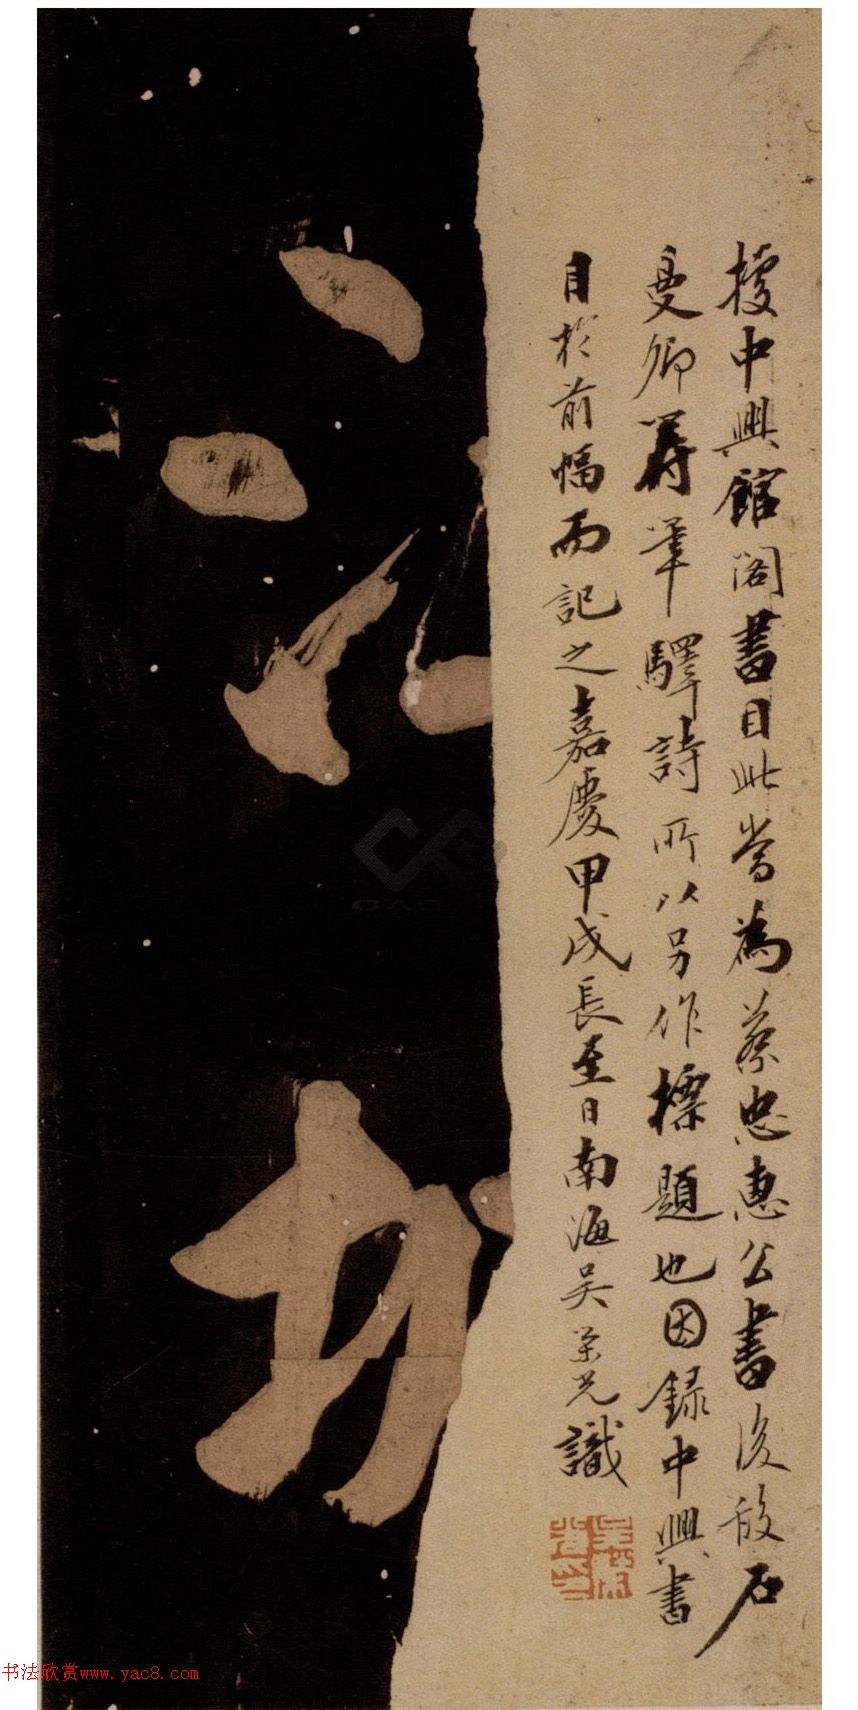 據中興館閣書目此當為蔡忠惠公書後段石
曼卿籌筆驛詩所以另作標題也因録中興書
目於前幅而記之嘉慶甲戌長至日南海吳榮光識
书法欣赏www.yac8.com